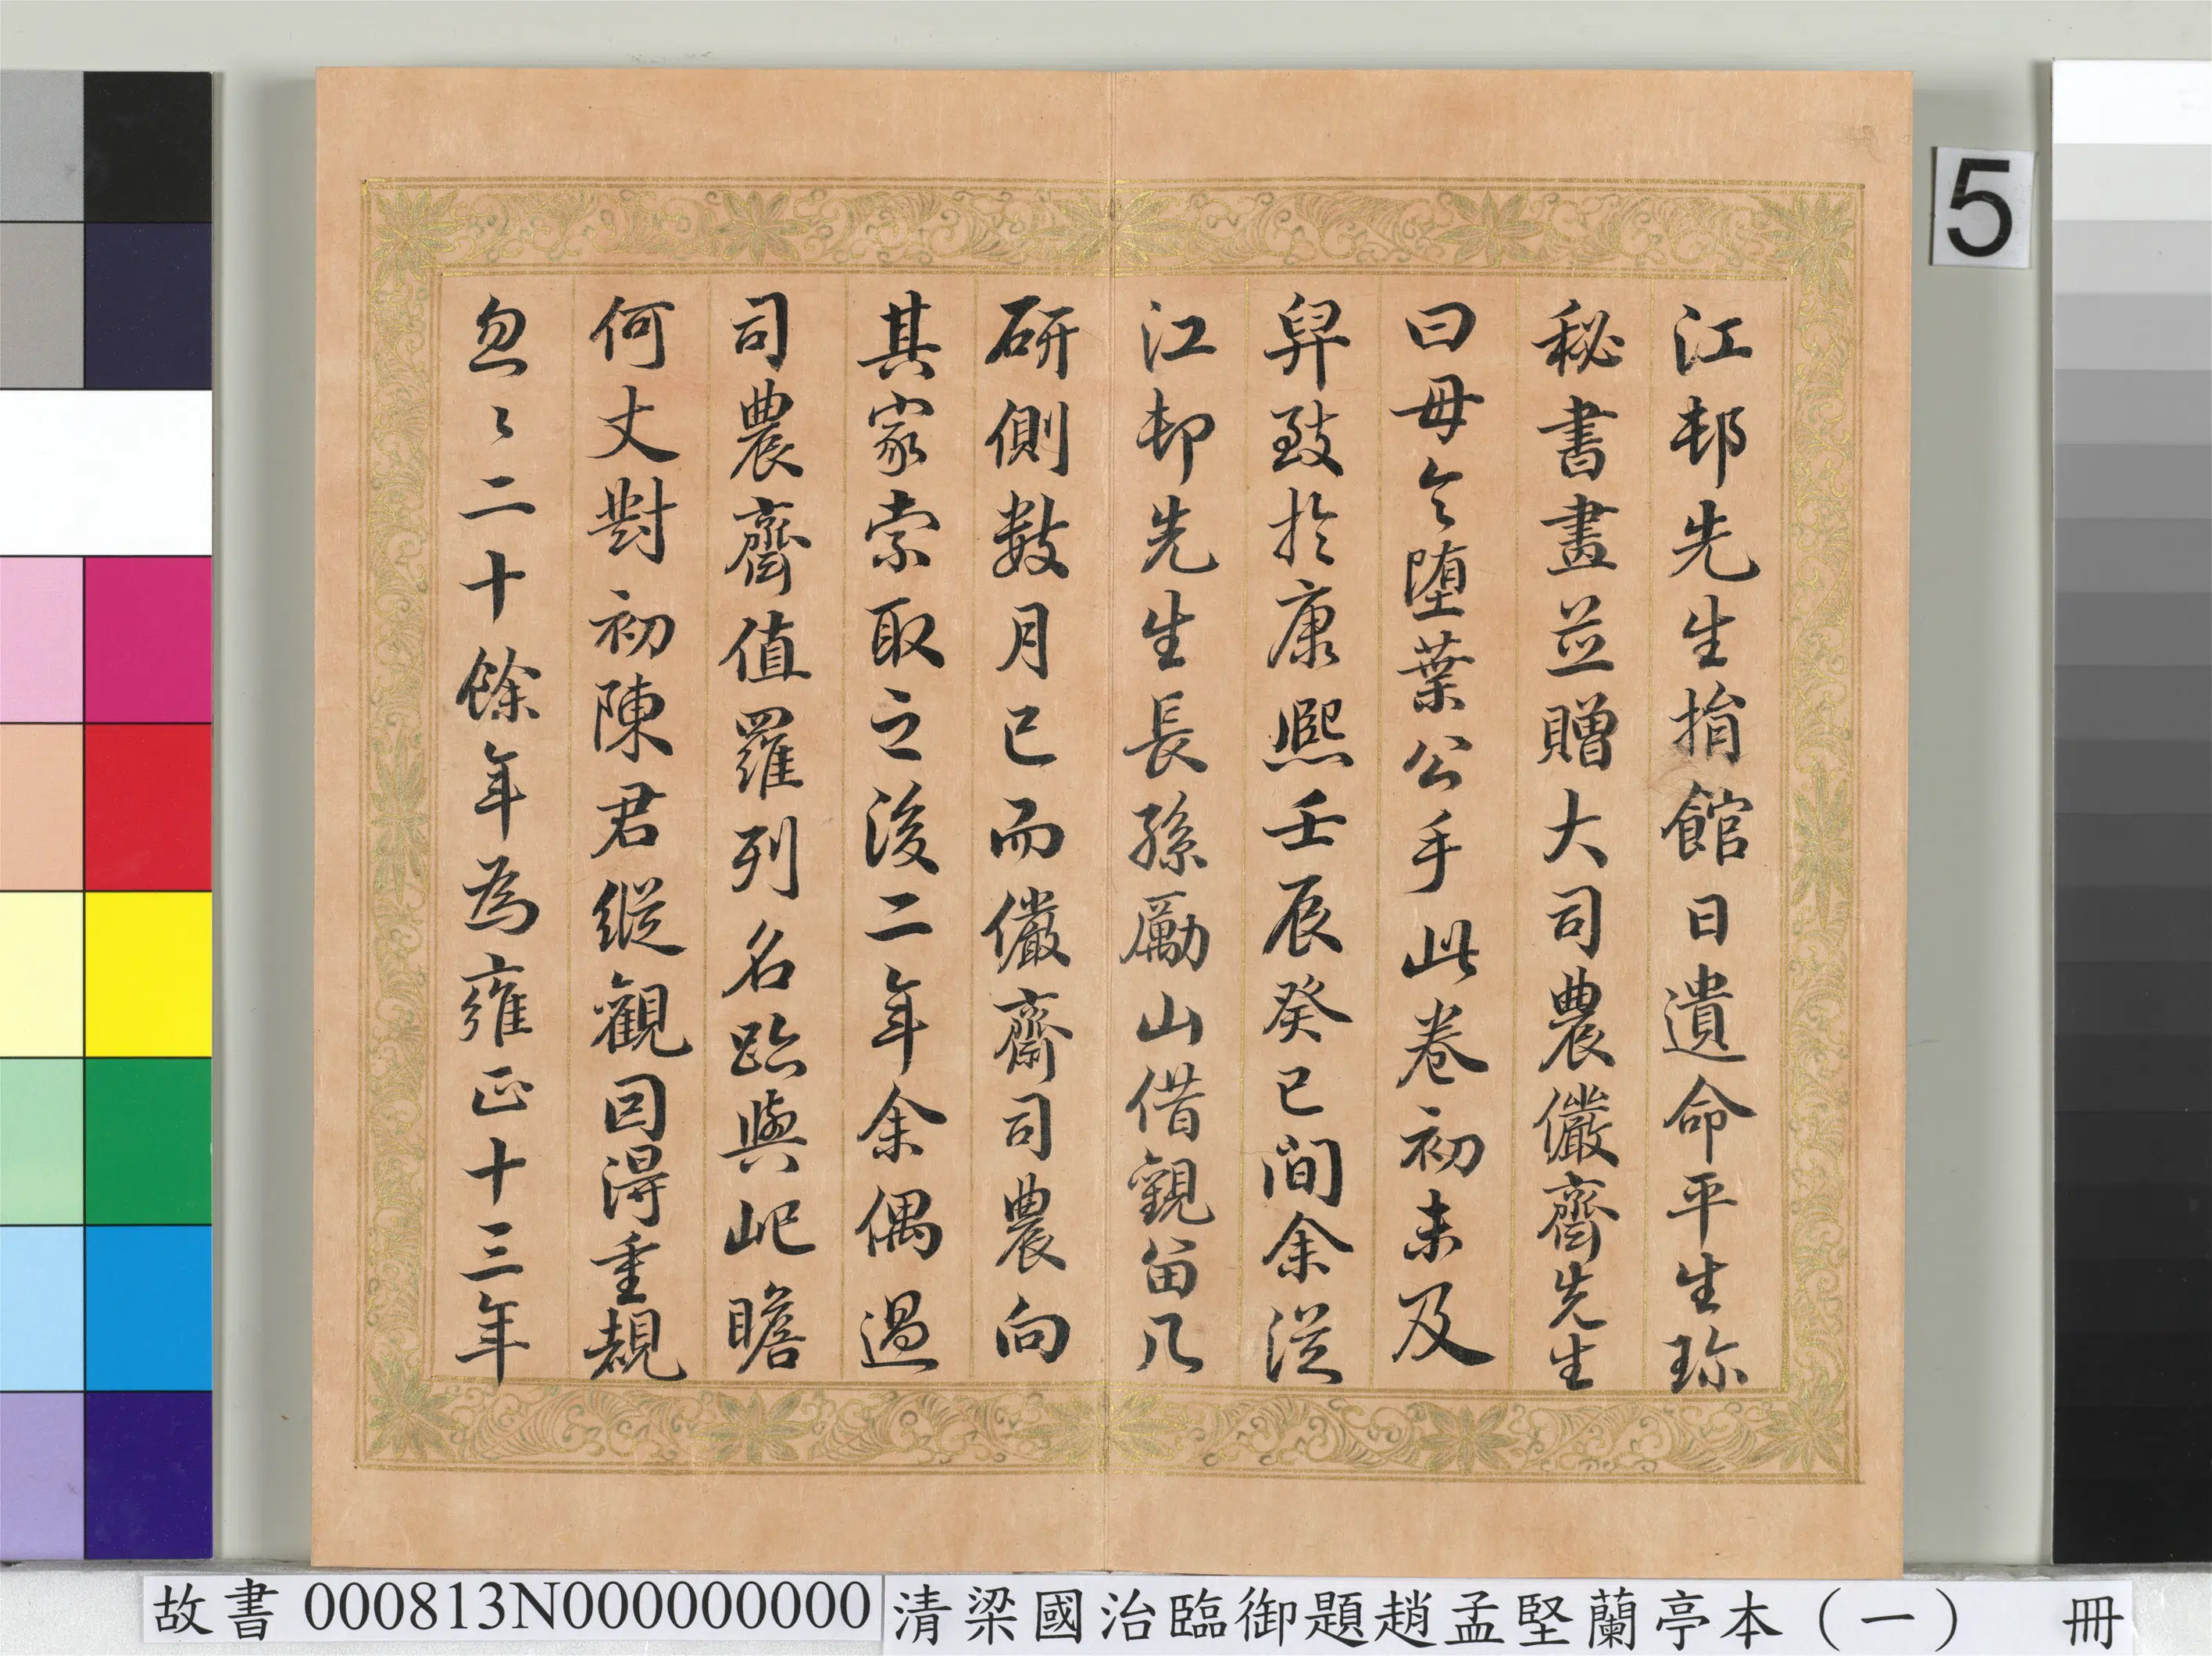 江邨先生捐館日遺命平生珎
秘書畫並贈大司農儼齋先生
曰毋令堕葉公手此卷初未及
舁致於康熙壬辰癸巳間余從
江邨先生長孫勵山借觀留几
研側數月已而儼齋司農向
其家索取之後二年余偶過
司農齋值羅列名蹟與此瞻
何丈對初陳君縱觀因得重覩
忽〻二十餘年為雍正十三年
5
故書 000813N000000000
清梁國治臨御題趙孟堅蘭亭本（一） 冊